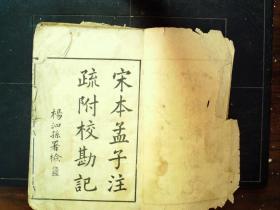 宋本孟子注
疏附校勘記
楊泗孫署檢